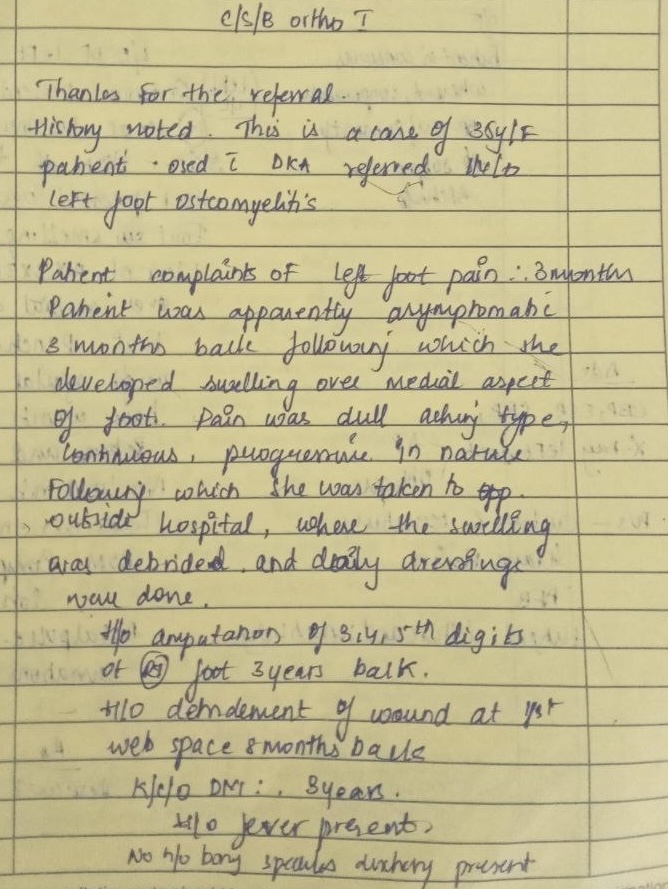 C/S/B ortho I
Thanks for the referral.
History noted. This is a case of 35y/F
patient · osed c̄ DKA referred i/v/o
left foot osteomyelitis
Patient complaints of left foot pain ∴ 3 months
Patient was apparently asymptomatic
3 months back following which she
developed swelling over medial aspect
of foot. Pain was dull aching type,
continuous, progressive in nature
Following which she was taken to
outside hospital, where the swelling
was debrided and daily dressings
were done.
H/o amputation of 3,4,5th digits
of foot 3 years back.
H/O debridement of wound at 1st
web space 8 months back
K/c/o DM : . 3 years.
H/o fever present
No h/o bony present